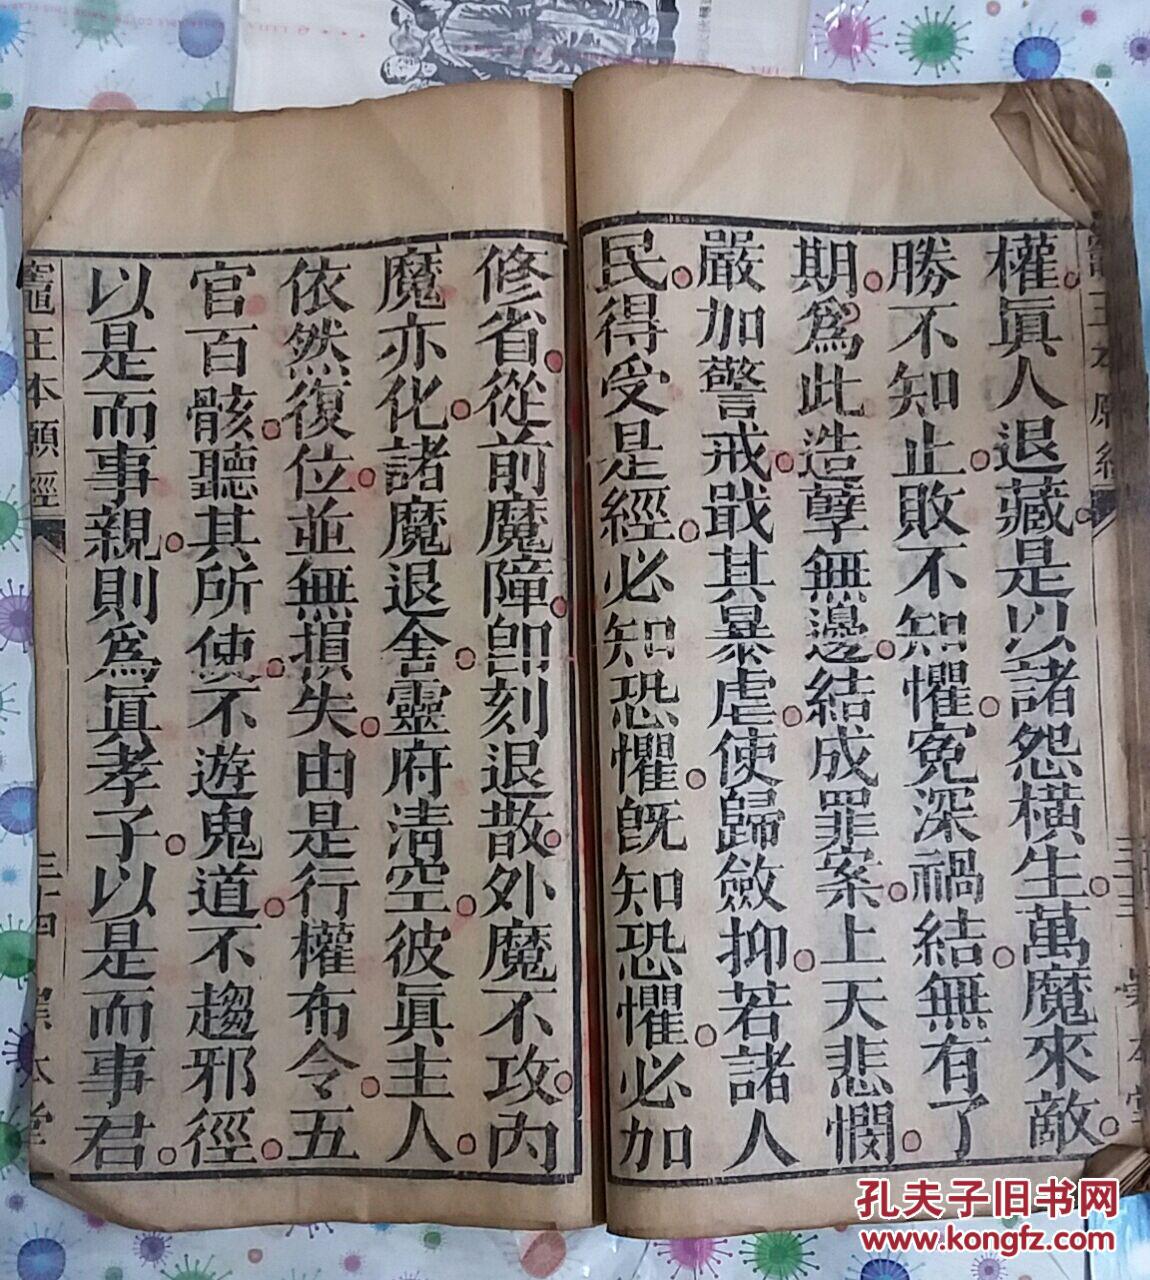 權眞人退藏是以諸怨橫生萬魔來敵
勝不知止敗不知懼寃深禍結無有了
期爲此造孽無邊結成罪案上天悲憫
嚴加警戒戢其暴虐使歸斂抑若諸人
民得受是經必知恐懼旣知恐懼必加
修省從前魔障卽刻退散外魔不攻內
魔亦化諸魔退舍靈府淸空彼眞主人
依然復位並無損失由是行權布令五
官百骸聽其所使不遊鬼道不趨邪徑
以是而事親則爲眞孝子以是而事君
竈王本願經
三十四
本堂
竈王本願經
三十三
本堂
孔夫子旧书网
www.kongfz.com